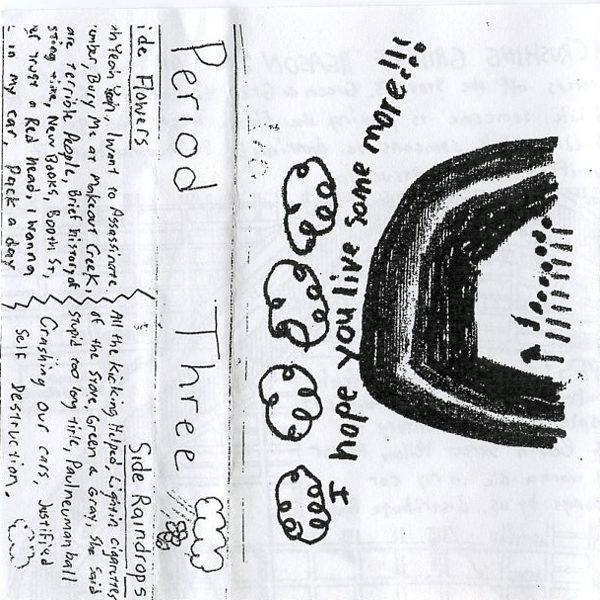 I hope you live some more!!!
Period Three
ide Flowers
h Yeah Yeah, I want to Assassinate
umber, Bury Me at Makeout Creek,
are terrible People, Brief history of
time, New Books, Booth St,
trust a Red head, I wanna
in my car, Pack a day
Side Raindrops
All the kicking Helped, Lightin cigarettes
of the Stove, Green & Gray, She Said
Stupid too long title, Paulnewman ball
Crashing Our cars, Justified
Self Destruction.